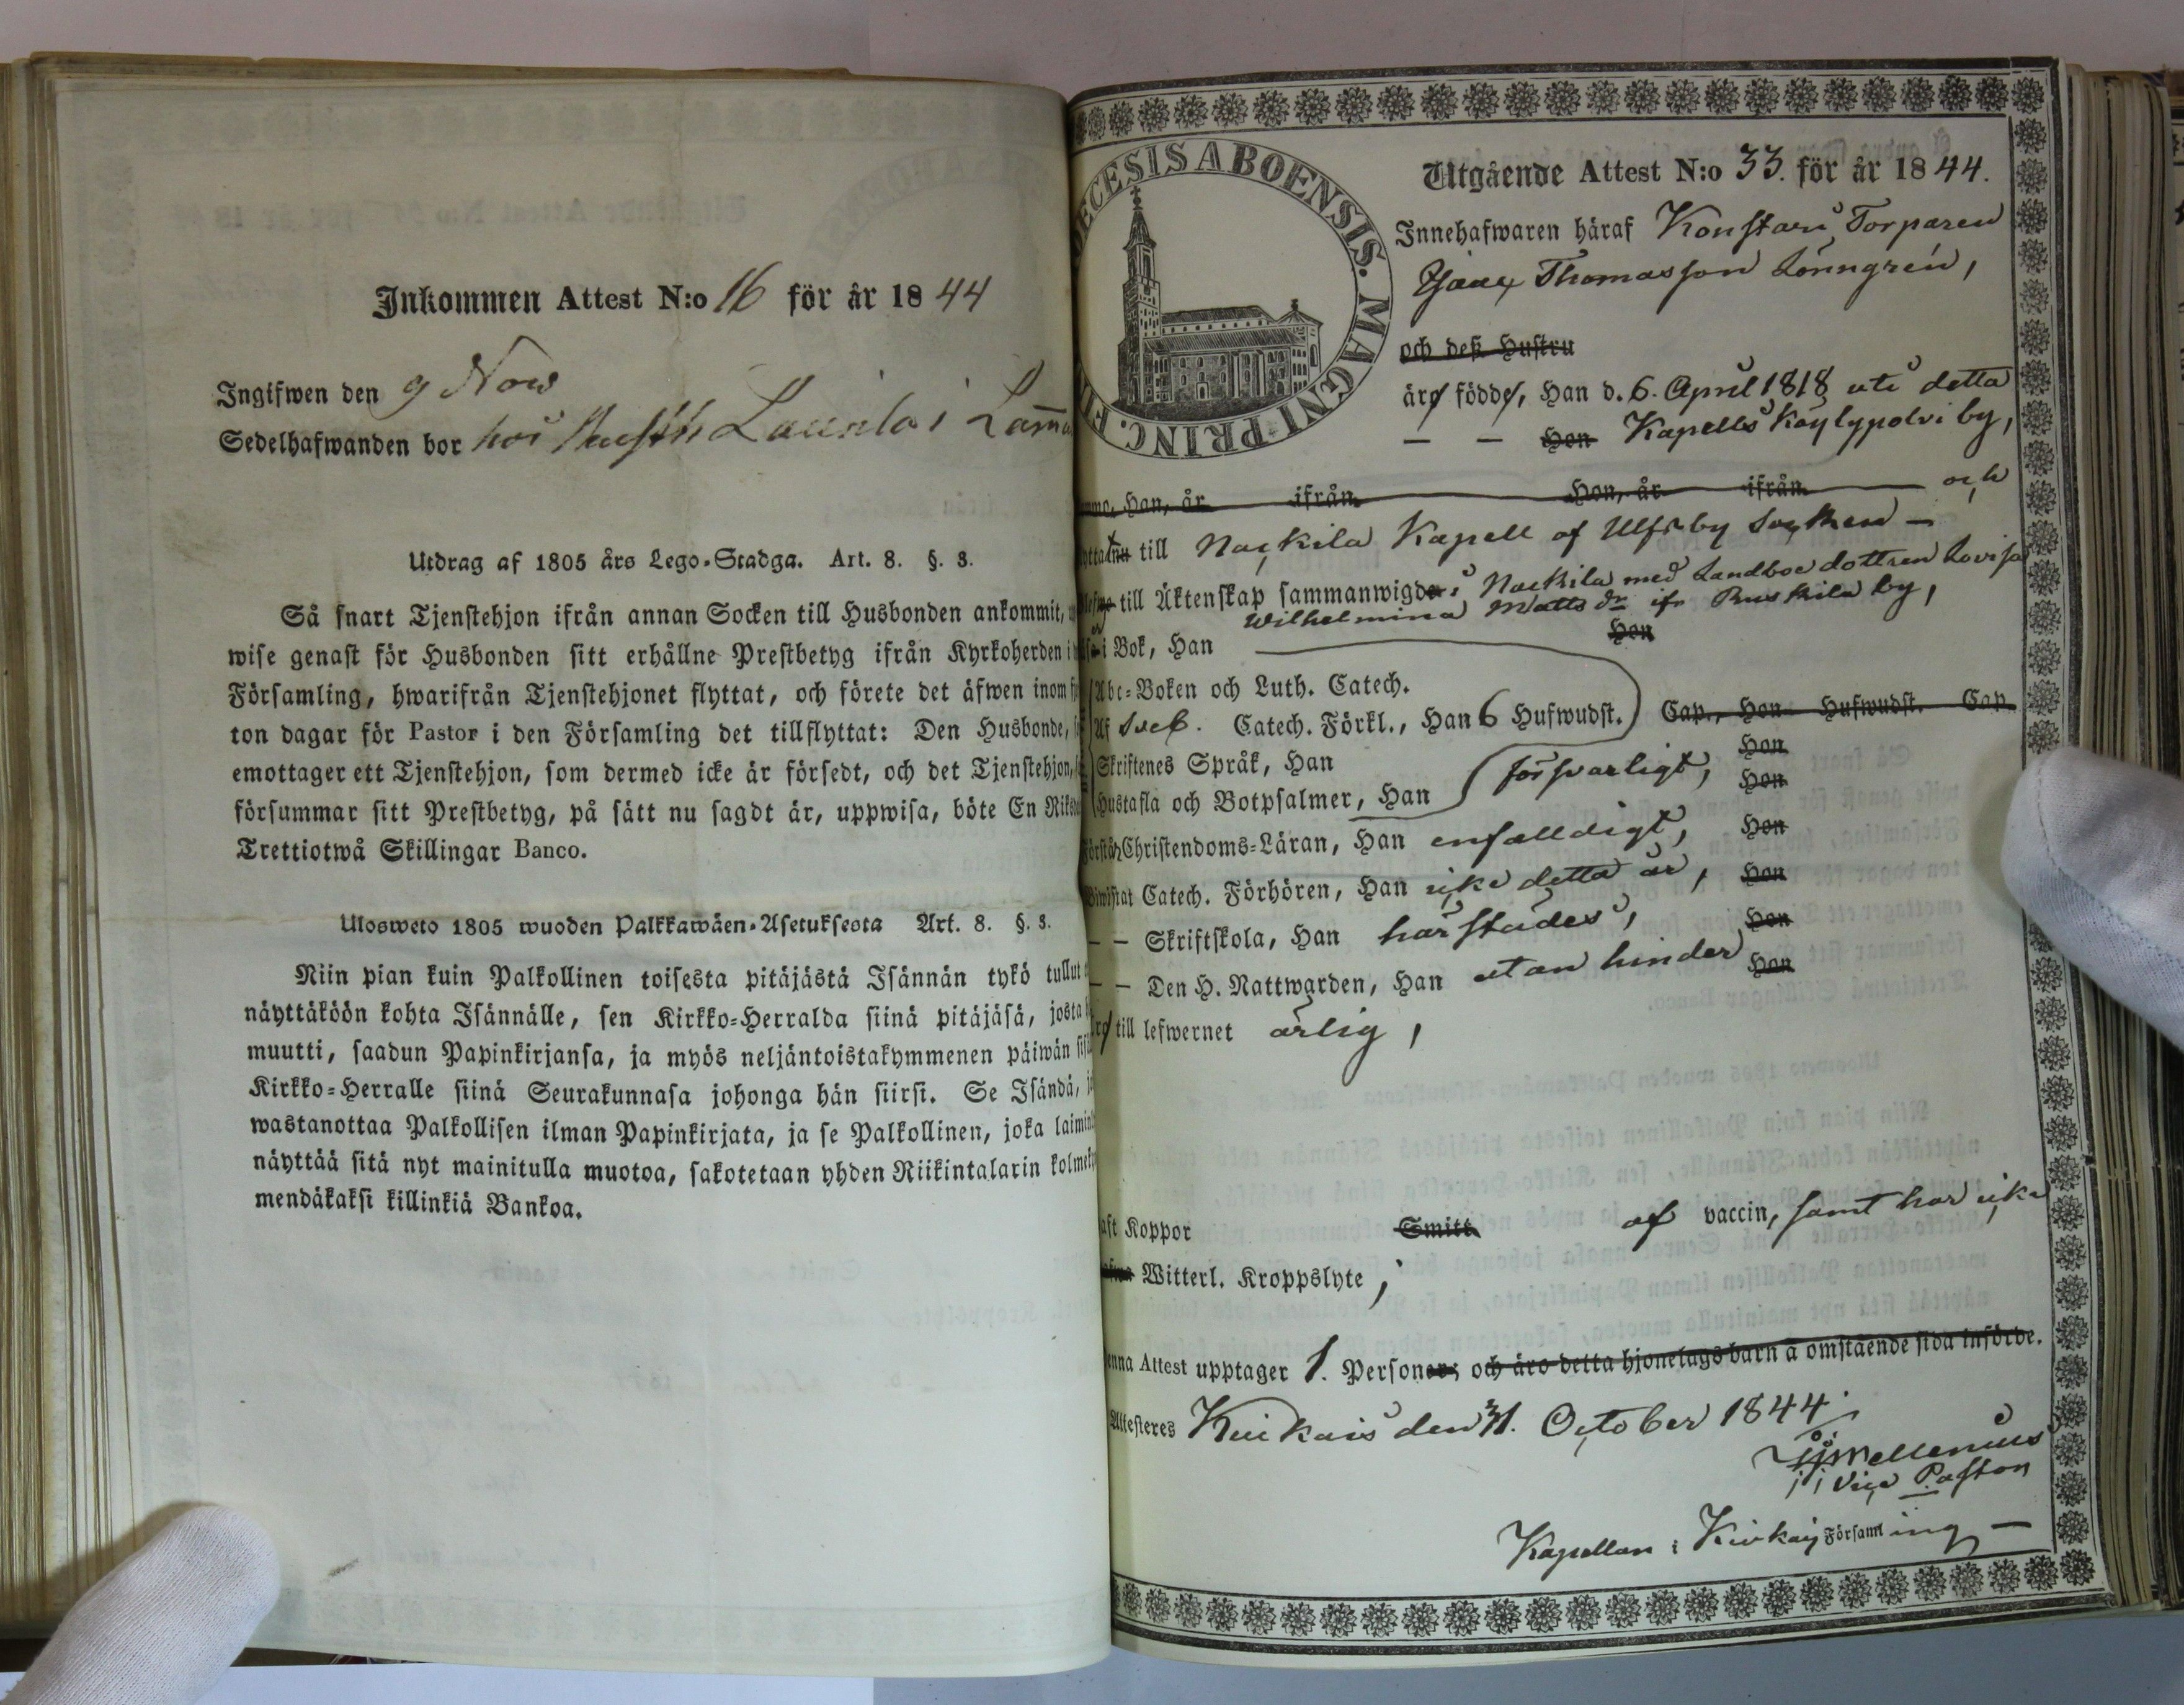 Inkommen Attest N:o 16 för år 1844
Ingifwen den 9 Nov
Sedelhafwanden bor hos Launila i
Utdrag af 1805 års Lego-Stadga. Art. 8. §. 3.
Så snart Tjenstehjon ifrån annan Socken till Husbonden ankommit,
wise genast för Husbonden sitt erhållne Prestbetyg ifrån Kyrkoherden i
Församling, hwarifrån Tjenstehjonet flyttat, och förete det äfwen inom
ton dagar för Pastor i den Församling det tillflyttat: Den Husbonde,
emottager ett Tjenstehjon, som dermed icke är försedt, och det Tjenstehjon,
försummar sitt Prestbetyg, på sätt nu sagdt är, uppwisa, böte En
Trettiotwå Skillingar Banco.
Ulosweto 1805 wuoden Palkkawäen-Asetuksesta Art. 8. §. 3.
Niin pian kuin Palkollinen toisesta pitäjästä Isännän tykö tullut
näyttäköön kohta Isännälle, sen Kirkko-Herralda siinä pitäjäsä, josta
muutti, saadun Papinkirjansa, ja myös neljäntoistakymmenen päiwän
Kirkko-Herralle siinä Seurakunnasa johonga hän siirsi. Se Isändä,
wastanottaa Palkollisen ilman Papinkirjata, ja se Palkollinen, joka
näyttää sitä nyt mainitulla muotoa, sakotetaan yhden Riikintalarin
mendäkaksi killinkiä Bankoa.
ECESIS ABOENSIS. MAGNI PRINC. FI
Utgående Attest N:o 33. för år 1844.
Innehafwaren häraf Torparen
Isaac Thomasson Lönngrén,
och desz Hustru
äro födde, Han d. 6. April 1818 uti detta
— — Hon Kapells Köylypolvi by,
Han, år ifrån Hon, år ifrån och
nu till Nackila Kapell af Ulfsby Socken —
till Äktenskap sammanwigde i Nackila med Landboedottren Lovisa
Wilhelmina Matts dr ifr Ruskila by,
i Bok, Han Hon
Abc-Boken och Luth. Catech.
Af Sveb. Catech. Förkl., Han 6 Hufwudst. Cap., Hon Hufwudst. Cap.
Skriftenes Språk, Han Hon
Hustafla och Botpsalmer, Han försvarligt, Hon
Christendoms-Läran, Han enfalldigt, Hon
Catech. Förhören, Han icke detta år, Hon
— — Skriftskola, Han härstädes, Hon
— — Den H. Nattwarden, Han utan hinder Hon
till lefwernet ärlig,
Koppor Smitt af vaccin, samt har icke
Witterl. Kroppslyte;
enna Attest upptager 1. Personer; och äro detta hjonelags barn å omstående sida införde.
Attesteres Kiukais den 31. October 1844
Mellenius
Vice Pastor
Kapellan i Kiukais Församling —